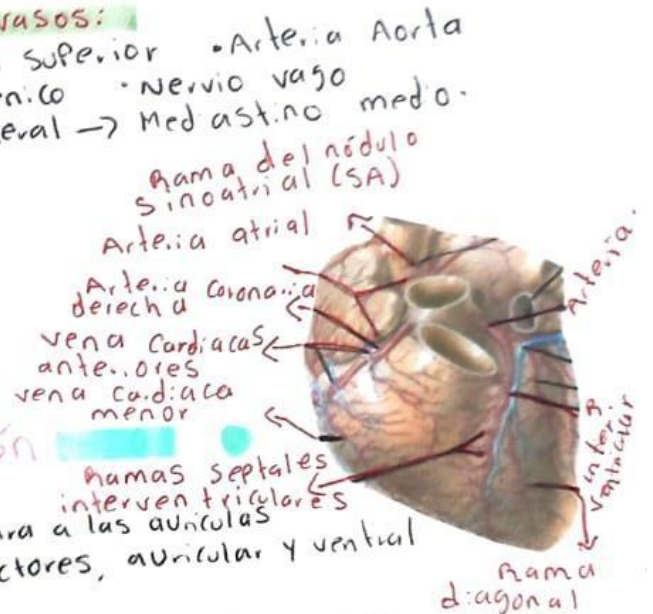 vasos:
Superior • Arteria Aorta
• Nervio vago
→ Mediastino medio.
Rama del nódulo
sinoatrial (SA)
Arteria atrial
Arteria coronaria
derecha
vena cardiacas
anteriores
vena cardiaca
menor
Ramas septales
interventriculares
a las aurículas
auricular y ventral
Arteria.
R
inter.
ventricular
Rama
diagonal